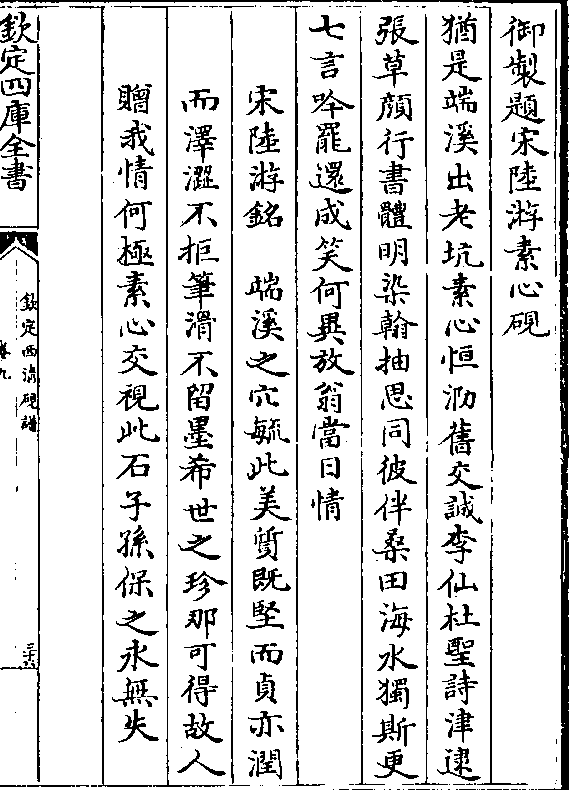 御製題宋陸游素心硯
猶是端溪出老坑素心恒泐舊交誠李仙杜聖詩津逮
張草顔行書體明染翰抽思同彼伴桑田海水獨斯更
七言吟罷還成笑何異放翁當日情
宋陸游銘　端溪之穴毓此美質既堅而貞亦潤
而澤澀不拒筆滑不留墨希世之珍那可得故人
贈我情何極素心交視此石子孫保之永無失
欽定四庫全書
欽定西清硯譜
卷九
三六